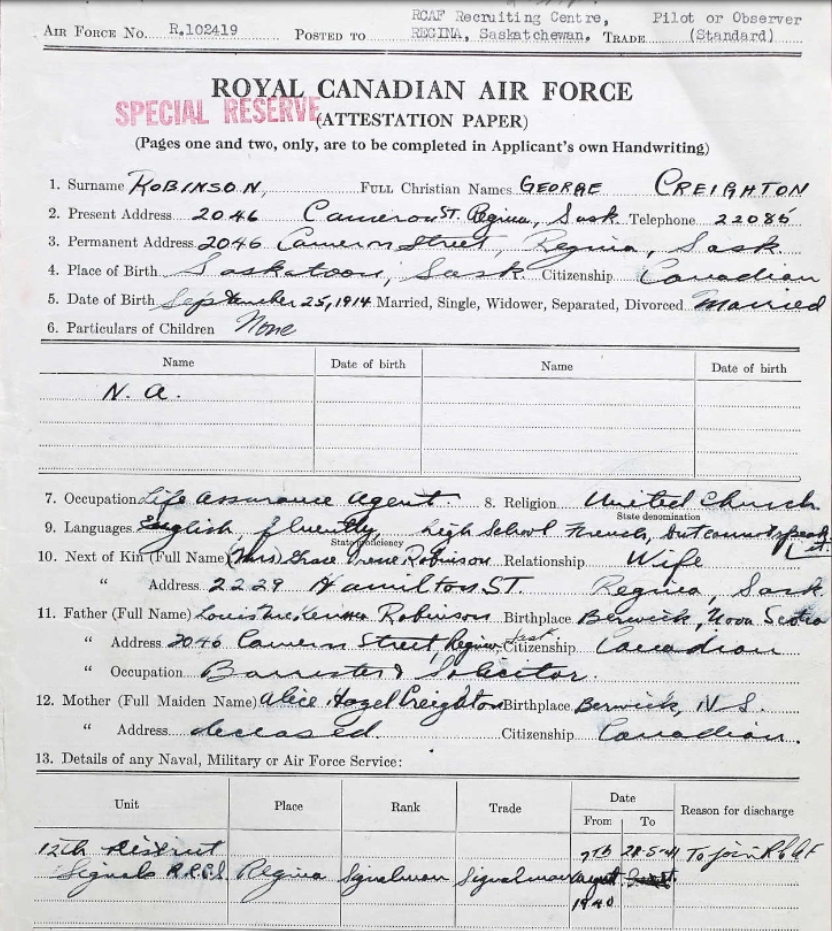 RCAF Recruiting Centre, Pilot or Observer
AIR FORCE NO. R.102419 POSTED TO REGINA, Saskatchewan. TRADE (Standard)
ROYAL CANADIAN AIR FORCE
SPECIAL RESERVE (ATTESTATION PAPER)
(Pages one and two, only, are to be completed in Applicant's own Handwriting)
1. Surname ROBINSON, FULL Christian Names GEORGE CREIGHTON
2. Present Address 2046 Cameron ST. Regina, Sask. Telephone 22085
3. Permanent Address 2046 Cameron Street, Regina, Sask.
4. Place of Birth Saskatoon, Sask. Citizenship Canadian
5. Date of Birth September 25, 1914 Married, Single, Widower, Separated, Divorced Married
6. Particulars of Children None
Name Date of birth Name Date of birth
N. A.
7. Occupation Life Assurance Agent. 8. Religion United Church
State denomination
9. Languages English, fluently, High School French, but cannot speak it.
State proficiency
10. Next of Kin (Full Name) (Mrs) Grace Irene Robinson Relationship Wife
" Address 2229 Hamilton ST. Regina, Sask.
11. Father (Full Name) Louis McKenna Robinson Birthplace Berwick, Nova Scotia
" Address 2046 Cameron Street, Regina, Sask. Citizenship Canadian
" Occupation Barrister & Solicitor.
12. Mother (Full Maiden Name) Alice Hazel Creighton Birthplace Berwick, N.S.
" Address deceased. Citizenship Canadian.
13. Details of any Naval, Military or Air Force Service:
Unit Place Rank Trade Date Reason for discharge
From To
12th District 7th 28-5-41 To join RCAF
Signals R.C.C.S. Regina Signalman Signalman August
1940